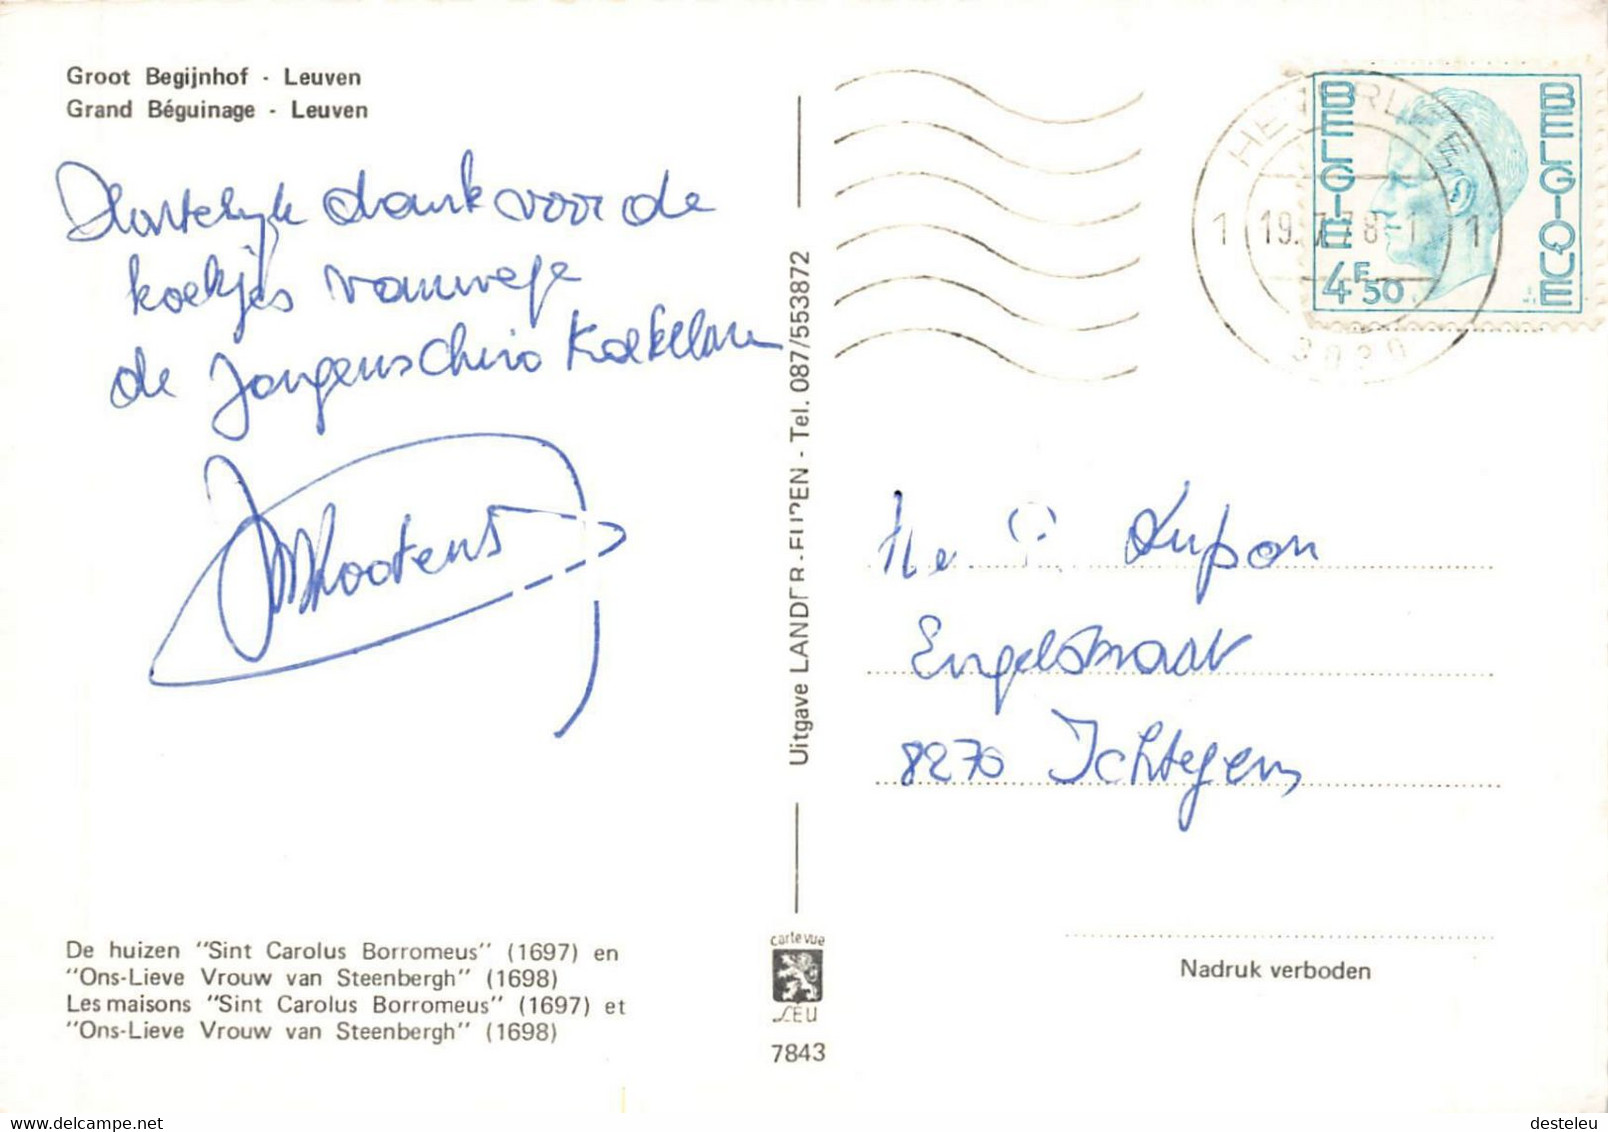 Groot Begijnhof - Leuven
Grand Béguinage - Leuven
Hartelijk dank voor de
koekjes vanwege
de Jongenschiro Koekelare
De huizen "Sint Carolus Borromeus" (1697) en
"Ons-Lieve Vrouw van Steenbergh" (1698)
Les maisons "Sint Carolus Borromeus" (1697) et
"Ons-Lieve Vrouw van Steenbergh" (1698)
Uitgave LANDER - EUPEN - Tel. 087/553872
carte vue
LEU
7843
HEVERLEE
1 19.7.78-1 1
3030
BELGIE
BELGIQUE
4F50
Dupon
Engelstraat
8270 Ichtegem
Nadruk verboden
desteleu